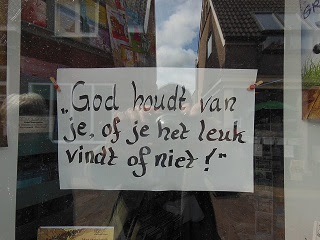 „God houdt van
je, of je het leuk
vindt of niet!"